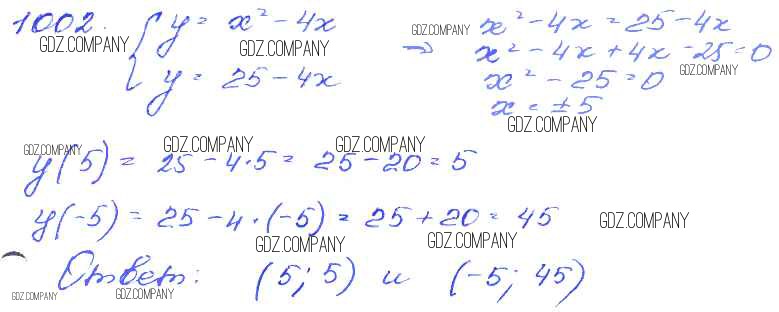 1002. { y = x² - 4x → x² - 4x = 25 - 4x
GDZ.COMPANY GDZ.COMPANY GDZ.COMPANY
y = 25 - 4x x² - 4x + 4x - 25 = 0
GDZ.COMPANY
x² - 25 = 0
x = ± 5
GDZ.COMPANY
GDZ.COMPANY GDZ.COMPANY GDZ.COMPANY
y(5) = 25 - 4·5 = 25 - 20 = 5
y(-5) = 25 - 4·(-5) = 25 + 20 = 45
GDZ.COMPANY
GDZ.COMPANY GDZ.COMPANY
Ответ: (5; 5) и (-5; 45)
GDZ.COMPANY GDZ.COMPANY